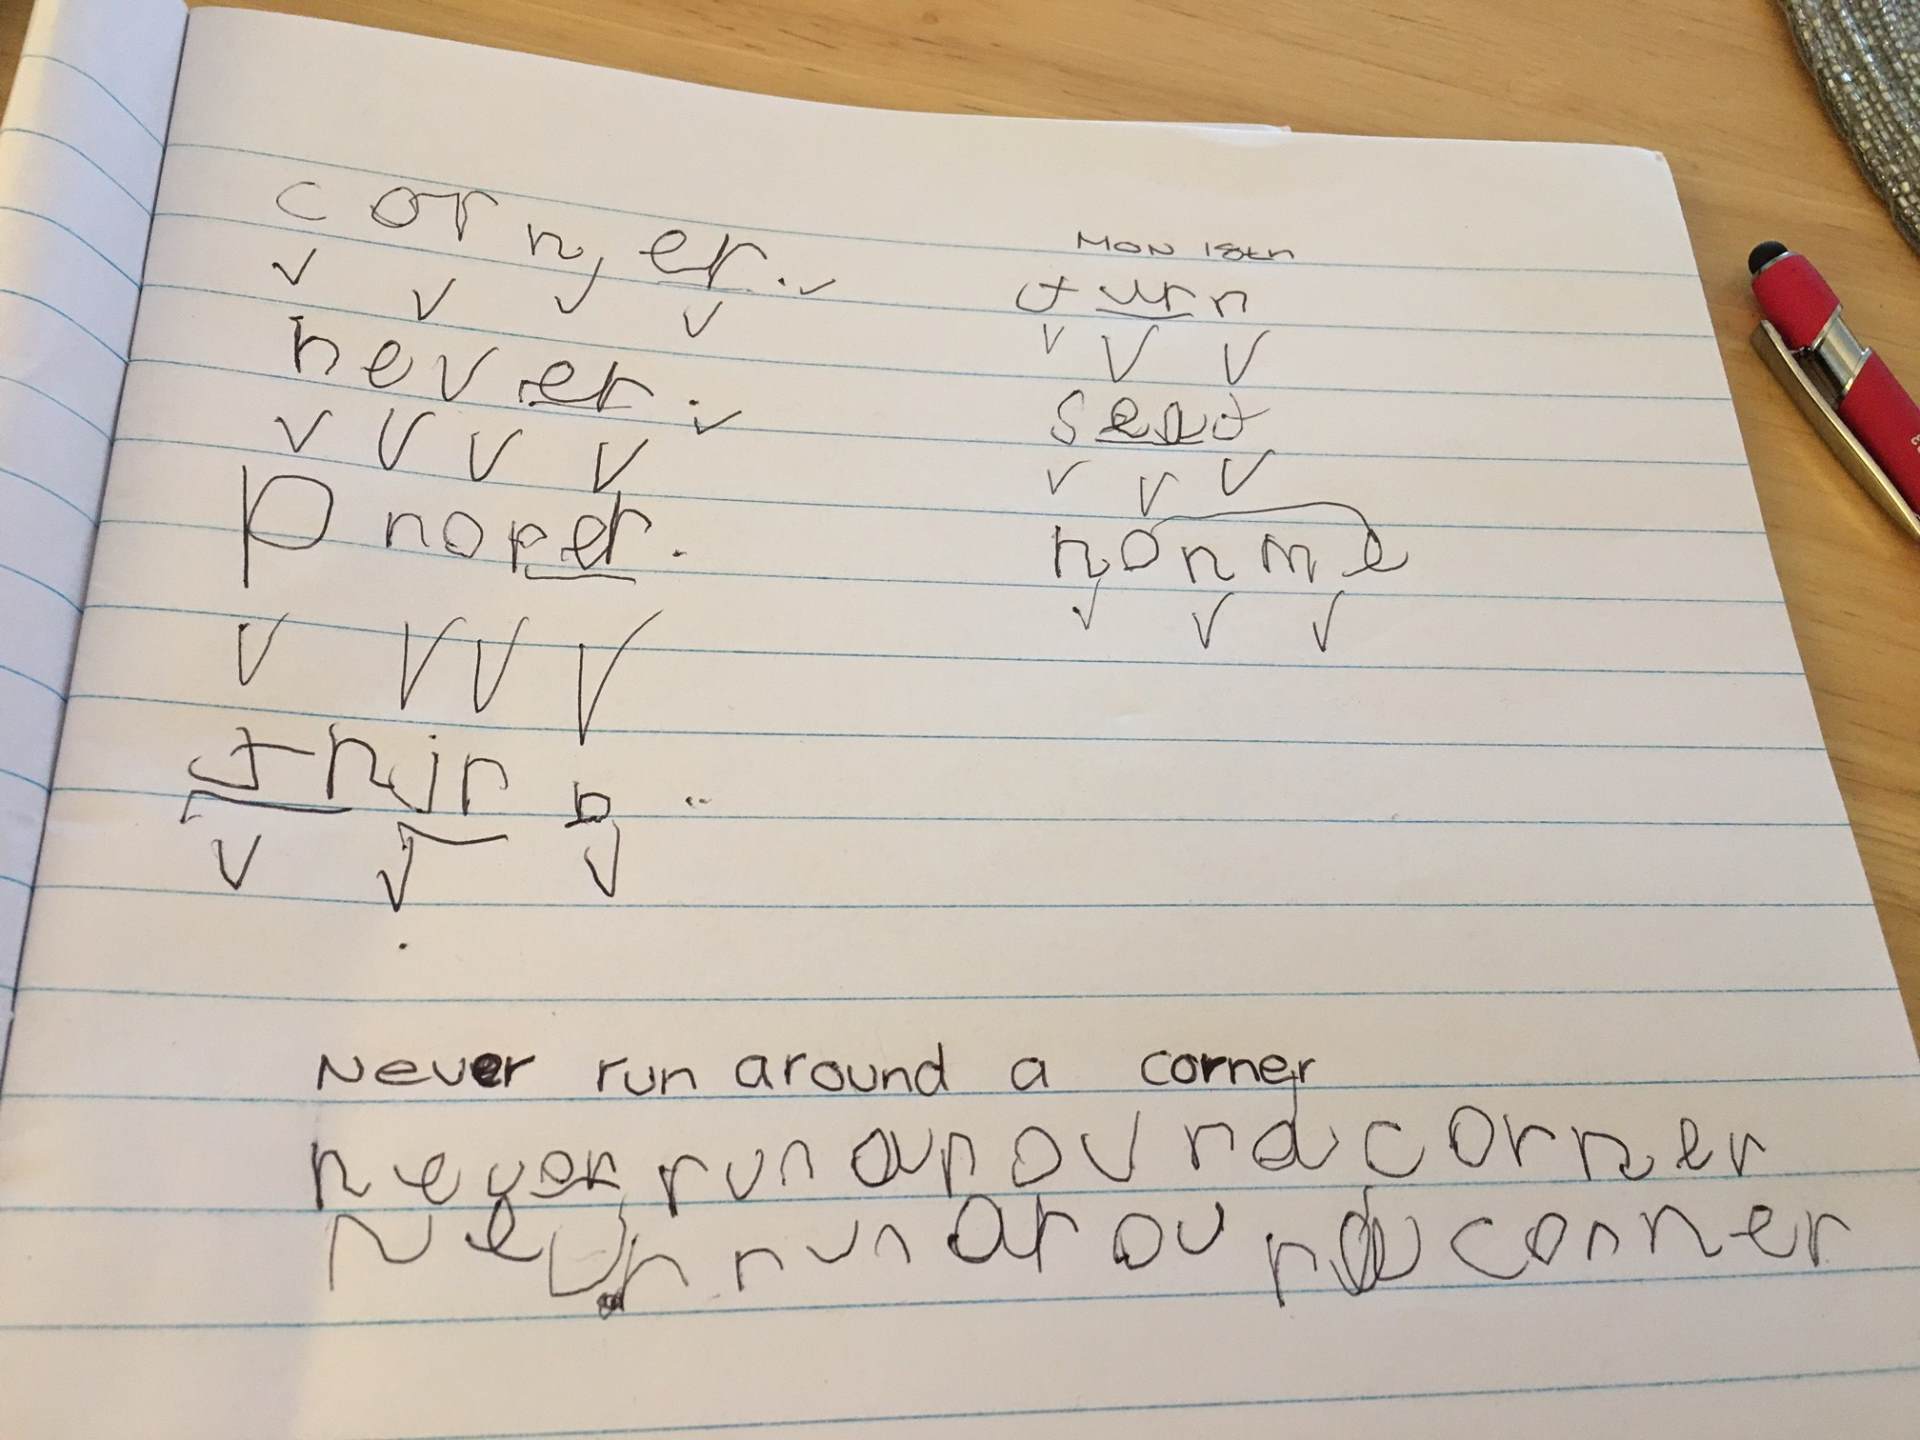 corner.
never.
proper.
third
Mon 18th
turn
seat
Never run around a corner
never run around a corner
Never run around a corner